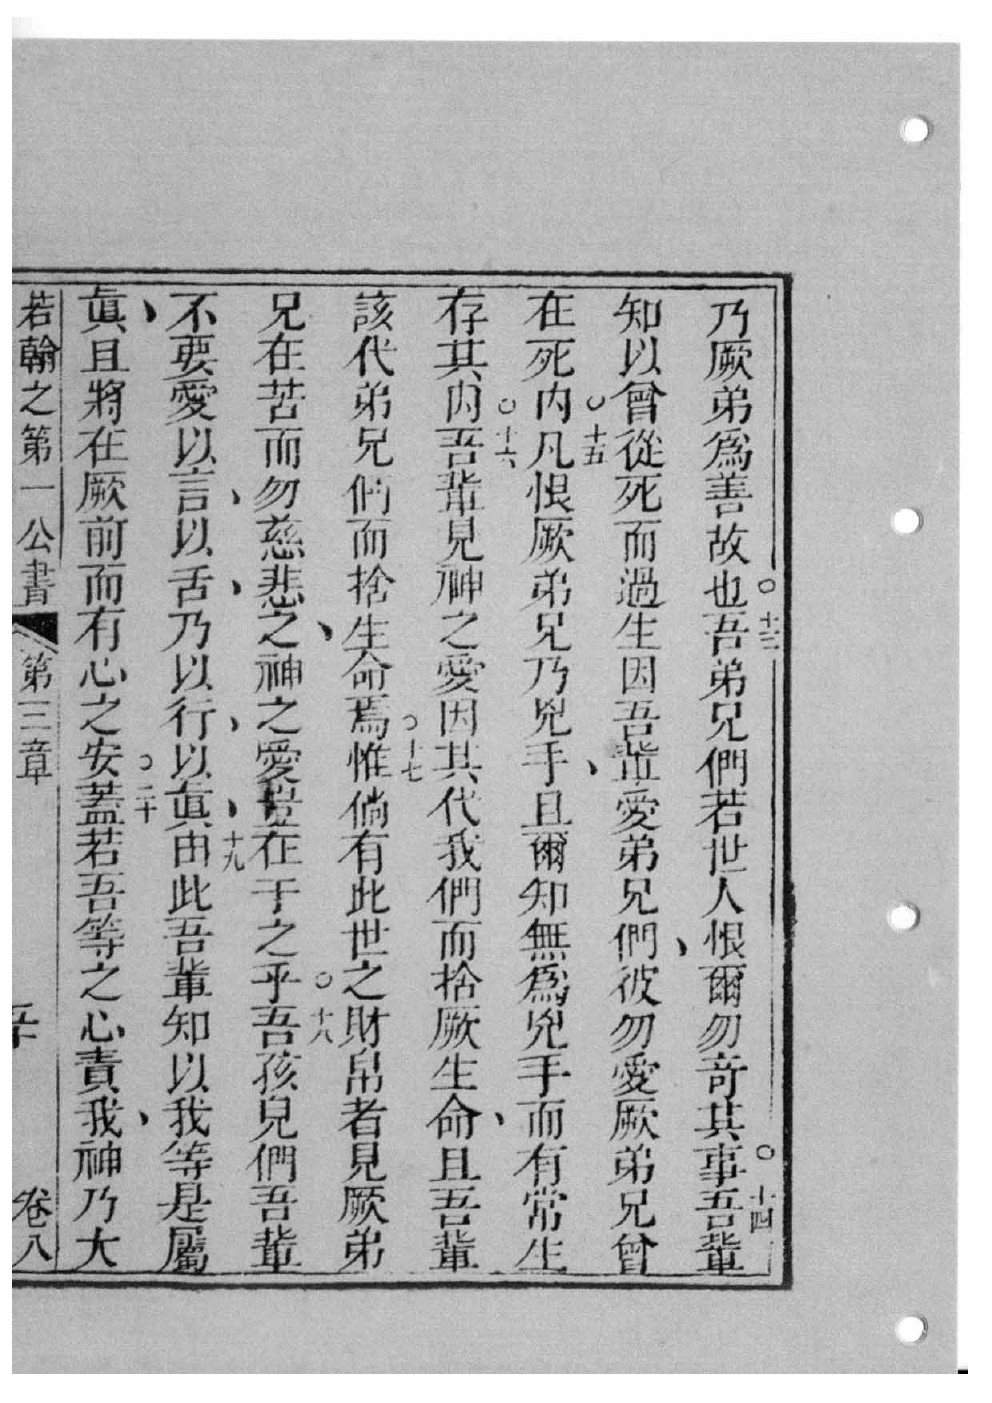 乃厥弟爲善故也○十三吾弟兄們若世人恨爾勿竒其事○十四吾輩
知以曾從死而過生因吾輩愛弟兄們、彼勿愛厥弟兄曾
在死內○十五凡恨厥弟兄乃兇手、且爾知無爲兇手而有常生
存其內○十六吾輩見神之愛因其代我們而捨厥生命、且吾輩
該代弟兄們而捨生命焉○十七惟倘有此世之財帛者見厥弟
兄在苦而勿慈悲之、神之愛豈在于之乎○十八吾孩兒們吾輩
不要愛以言、以舌、乃以行、以眞、十九由此吾輩知以我等是屬
眞、且將在厥前而有心之安○二十蓋若吾等之心責我、神乃大
若翰之第一公書 第三章 卷八